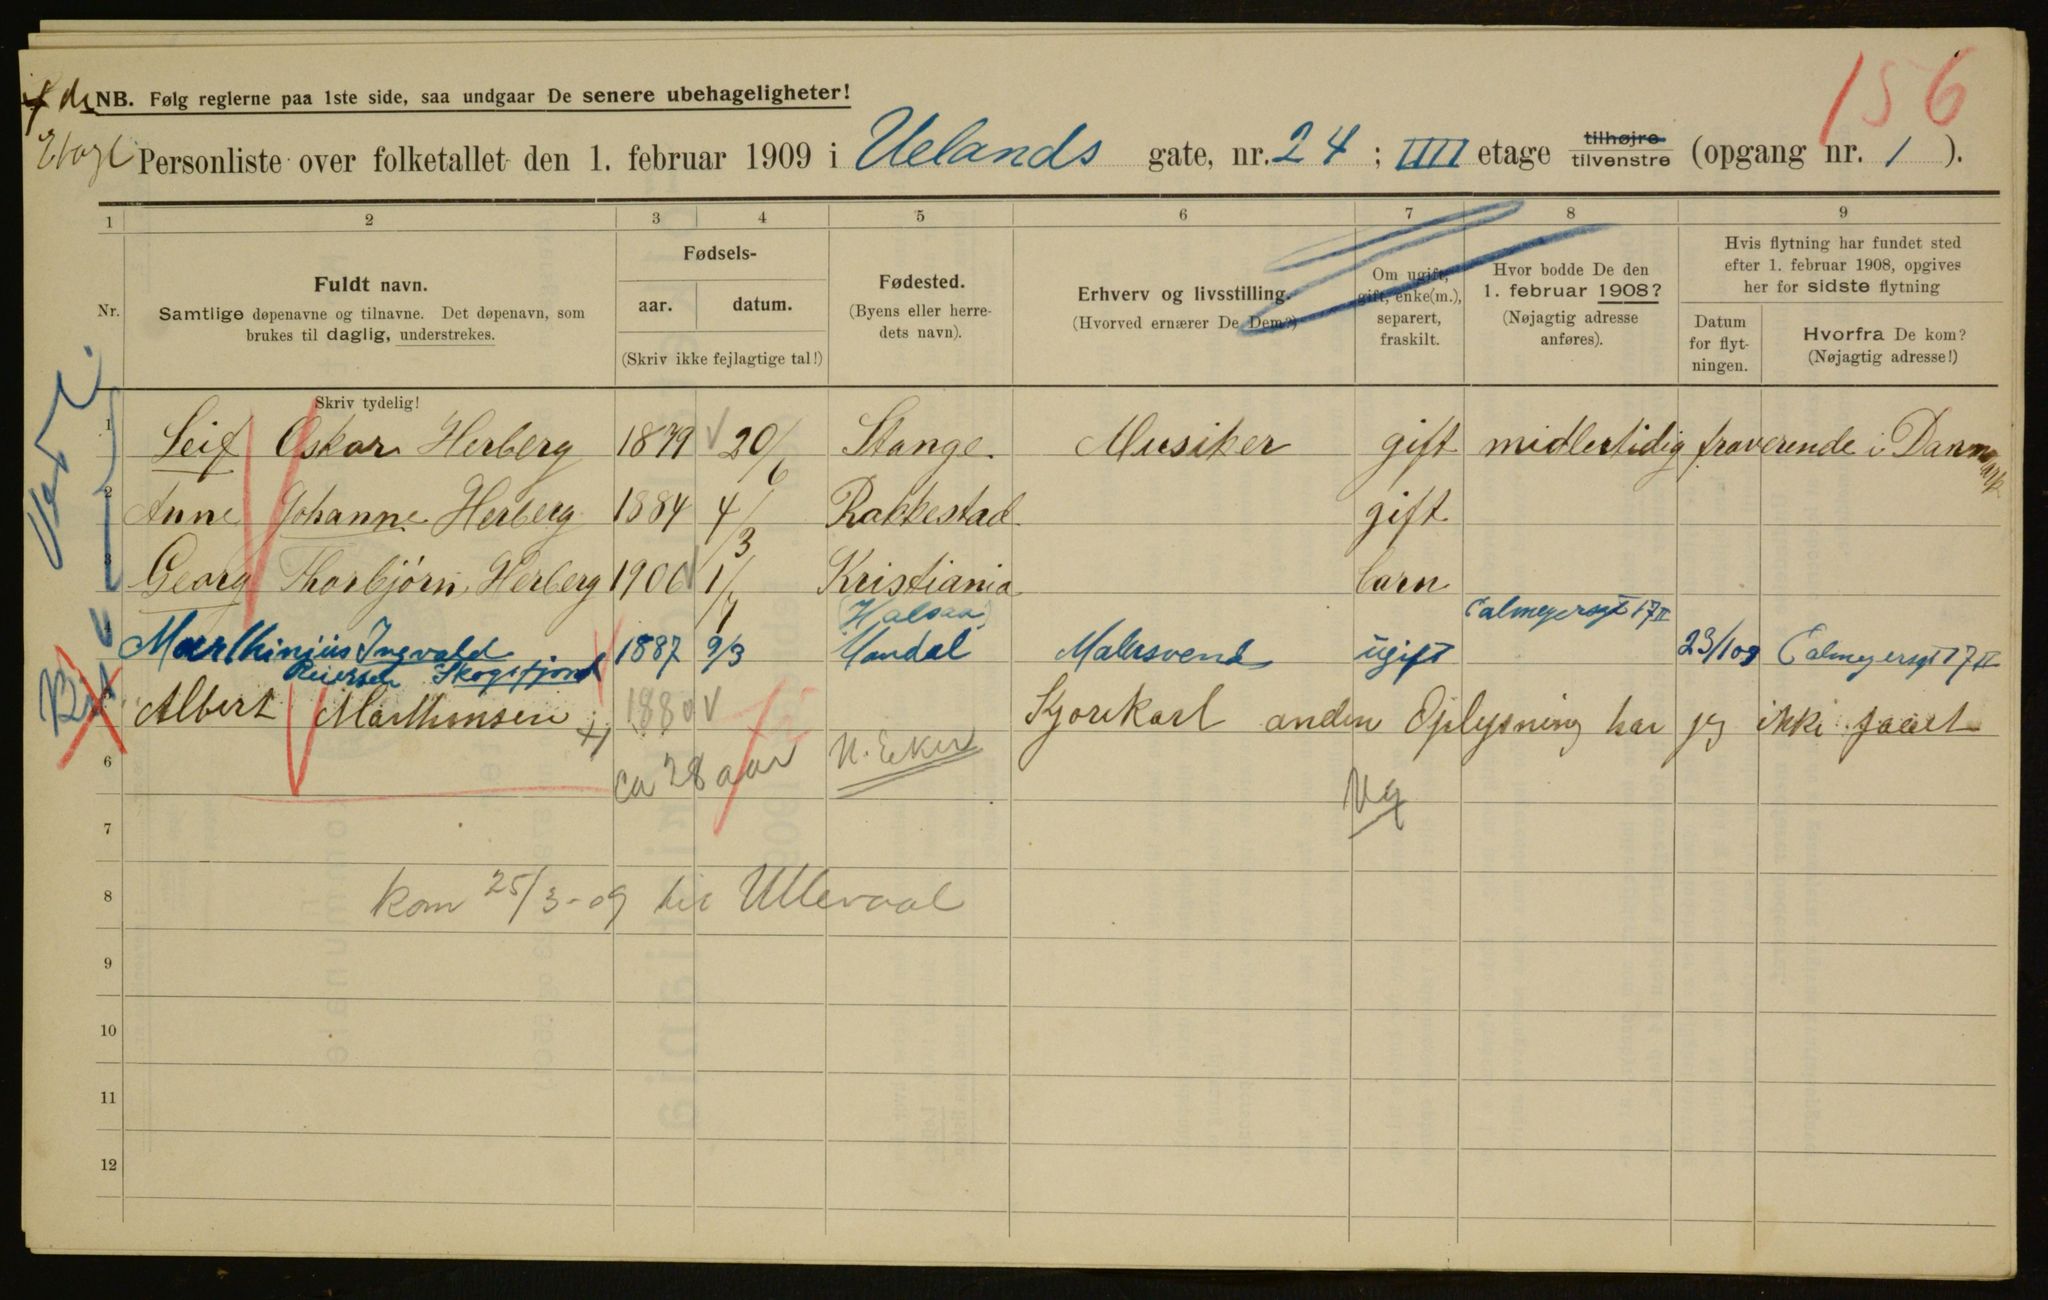 156
4de Etage
NB. Følg reglerne paa 1ste side, saa undgaar De senere ubehageligheter!
Personliste over folketallet den 1. februar 1909 i Uelands gate, nr. 24 ; IIII etage tilhøjre tilvenstre (opgang nr. 1 ).
1 2 3 4 5 6 7 8 9
Nr.
Fuldt navn.
Samtlige døpenavne og tilnavne. Det døpenavn, som
brukes til daglig, understrekes.
Fødsels-
aar. datum.
(Skriv ikke fejlagtige tal!)
Fødested.
(Byens eller herre-
dets navn).
Erhverv og livsstilling.
(Hvorved ernærer De Dem?)
Om ugift,
gift, enke(m.),
separert,
fraskilt.
Hvor bodde De den
1. februar 1908?
(Nøjagtig adresse
anføres).
Hvis flytning har fundet sted
efter 1. februar 1908, opgives
her for sidste flytning
Datum
for flyt-
ningen.
Hvorfra De kom?
(Nøjagtig adresse!)
Skriv tydelig!
1 Leif Oskar Herberg 1879 20/6 Stange. Musiker gift midlertidig fraverende i Danmark
2 Anne Johanne Herberg 1884 4/3 Rakkestad gift
3 Georg Thorbjørn Herberg 1906 1/7 Kristiania barn
4 Marthinius Ingvald Reiersen Skogsfjord 1887 9/3 (Halsaa) Mandal Malersvend ugift Calmeyersgt 17 II 23/1 09 Calmeyersgt 17 II
5 Albert Marthinsen 1880 Kjørekarl anden Oplysning har jeg ikke faaet
6 ca 28 aar N. Eker Ug
7
8 kom 25/3-09 til Ullevaal
9
10
11
12